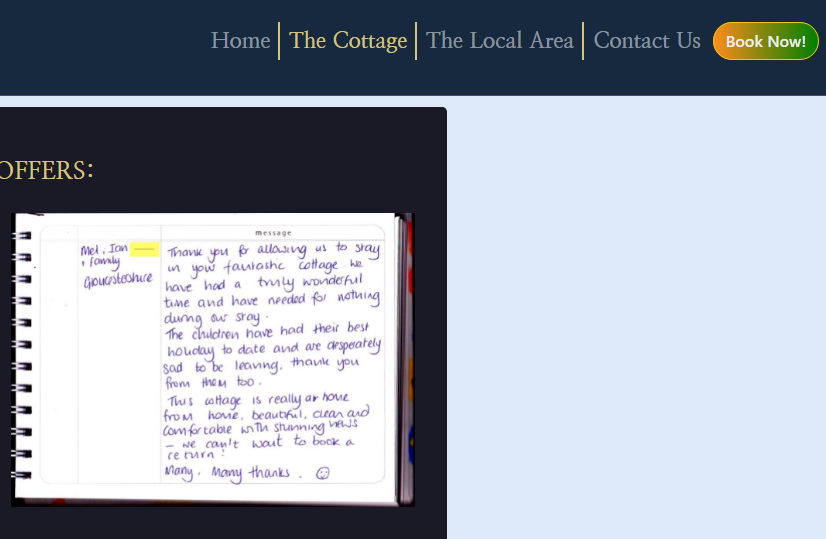 Home
The Cottage
The Local Area
Contact Us
Book Now!
OFFERS:
message
Mel, Ian
+ family
Gloucestershire
Thank you for allowing us to stay
in your fantastic cottage. We
have had a truly wonderful
time and have needed for nothing
during our stay.
The children have had their best
holiday to date and are desperately
sad to be leaving, thank you
from them too.
This cottage is really a home
from home, beautiful, clean and
comfortable with stunning views
– we can't wait to book a
return!
Many, Many thanks. ☺